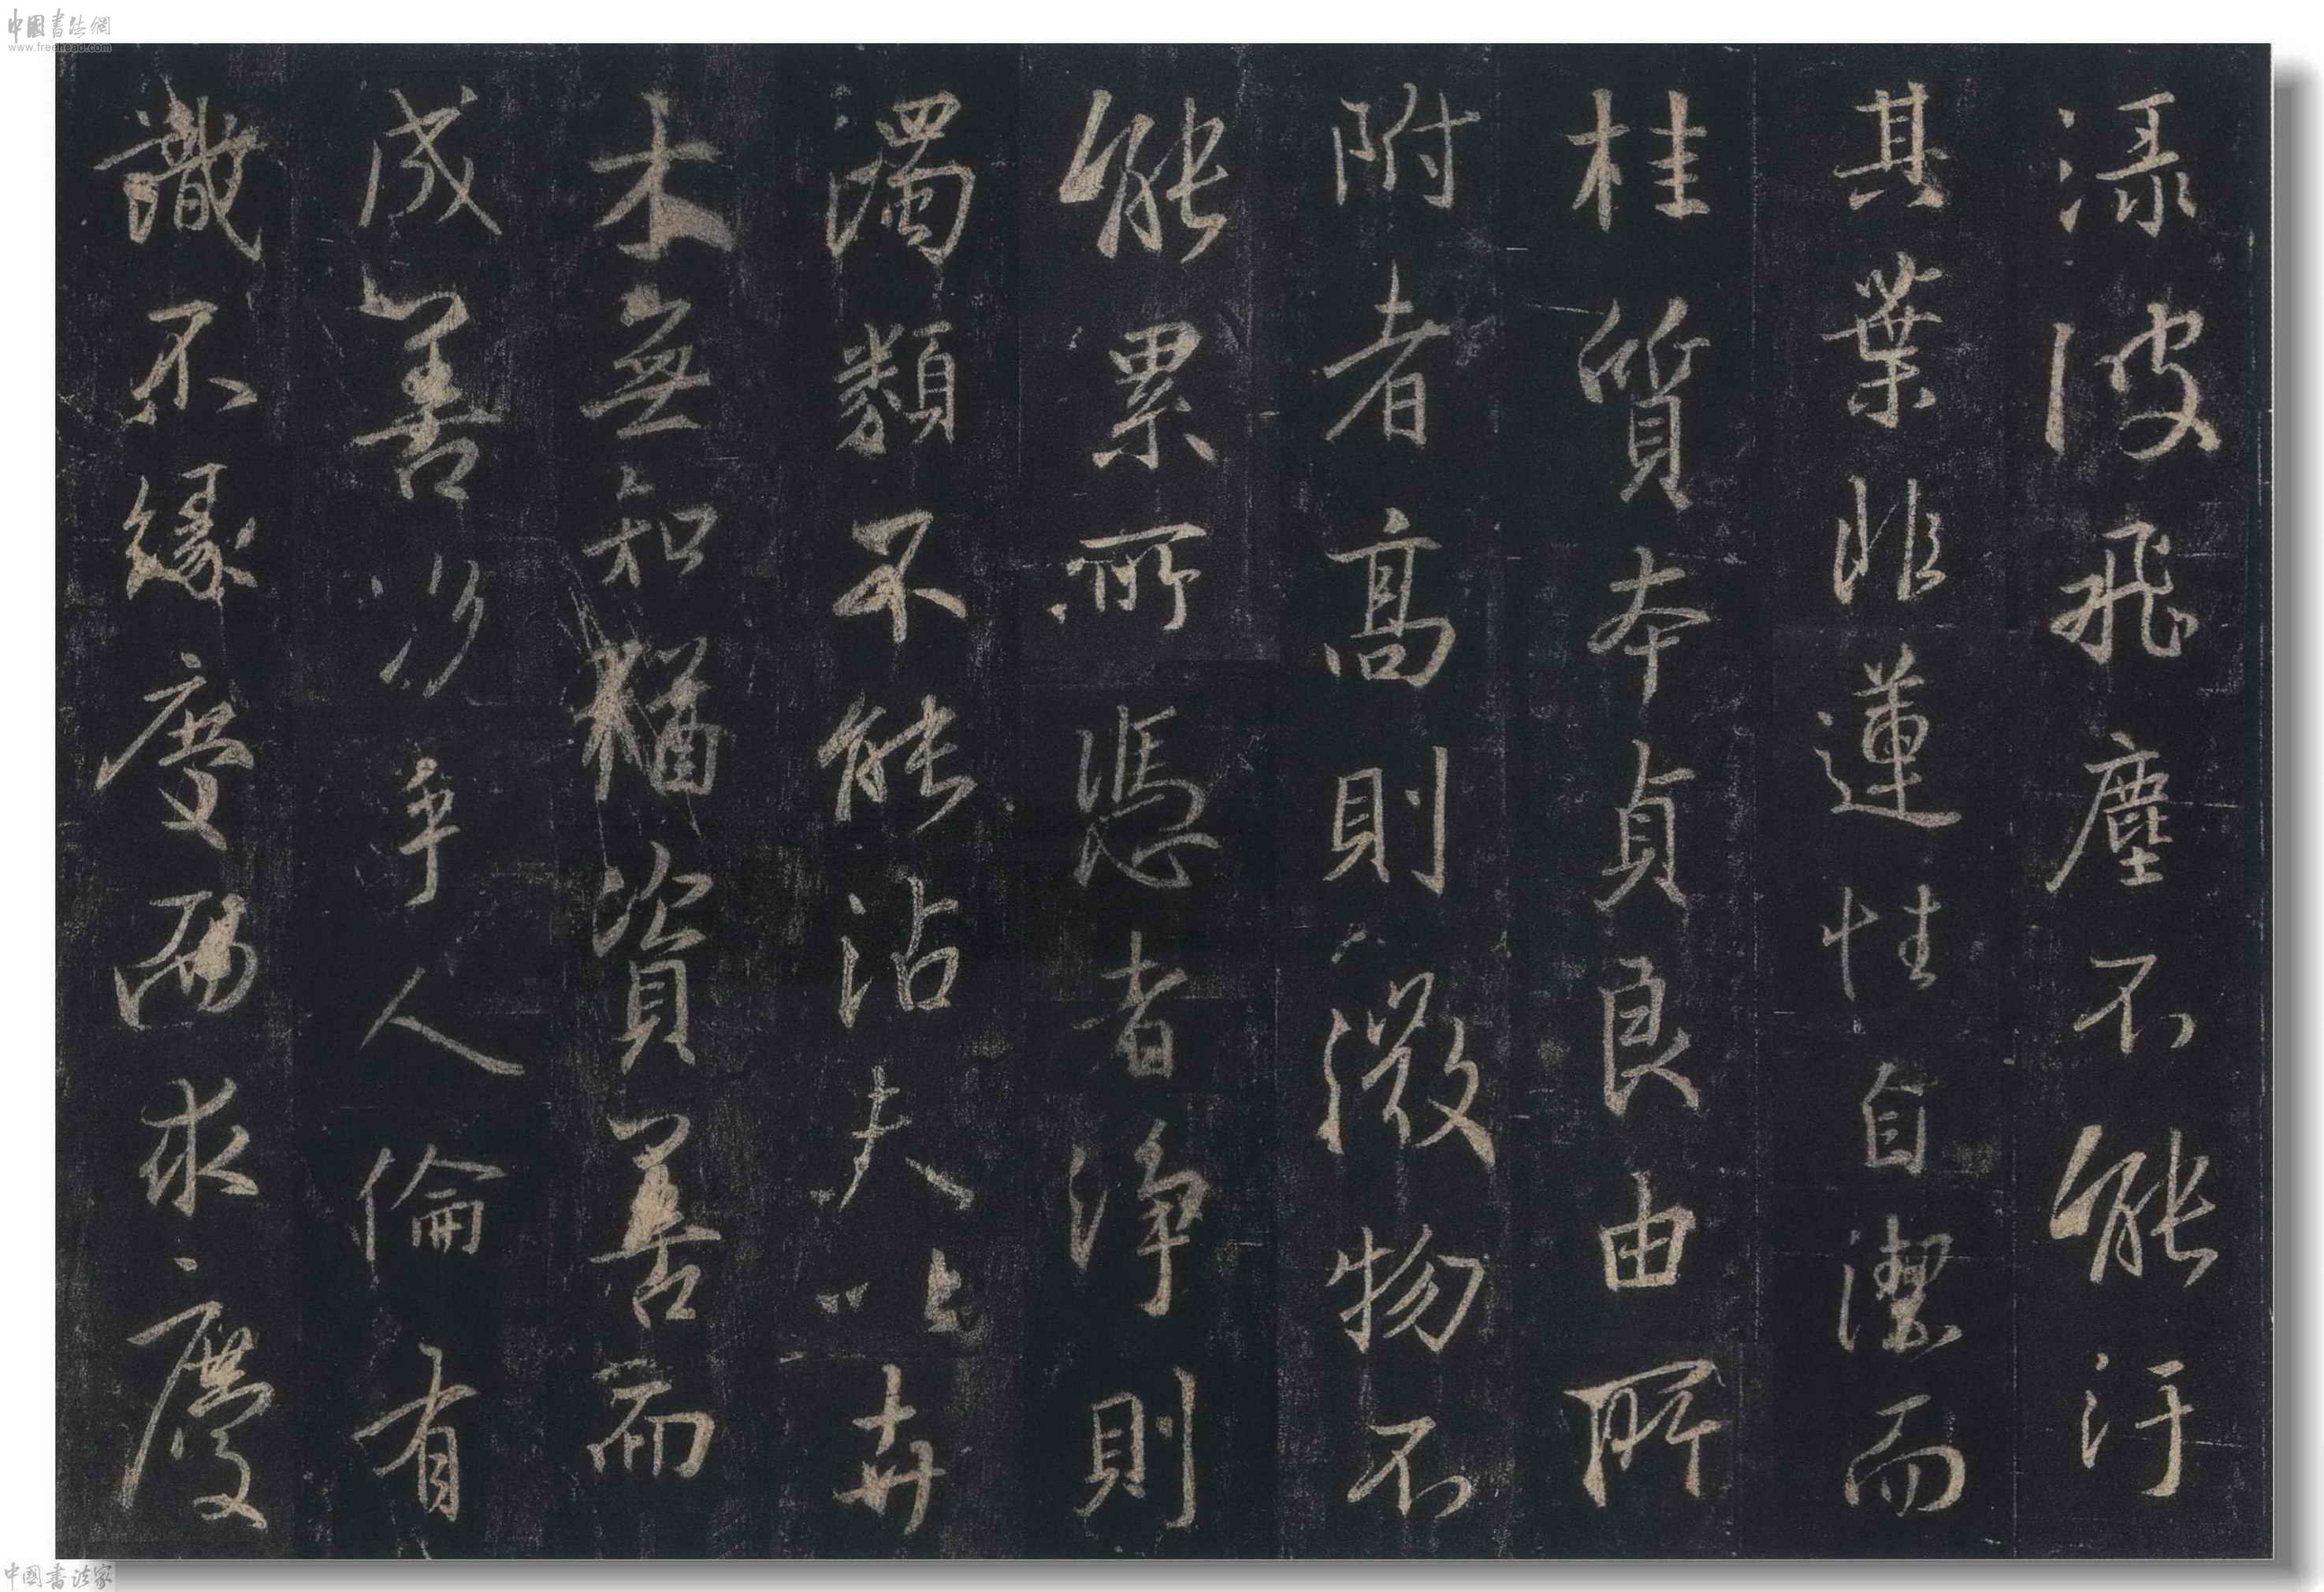 渌波飛塵不能汙
其葉非蓮性自潔而
桂質本貞良由所
附者高則微物不
能累所憑者淨則
濁類不能沾夫以卉
木無知猶資善而
成善況乎人倫有
識不緣慶而求慶
中國書法網
www.freehead.com
中國書法家